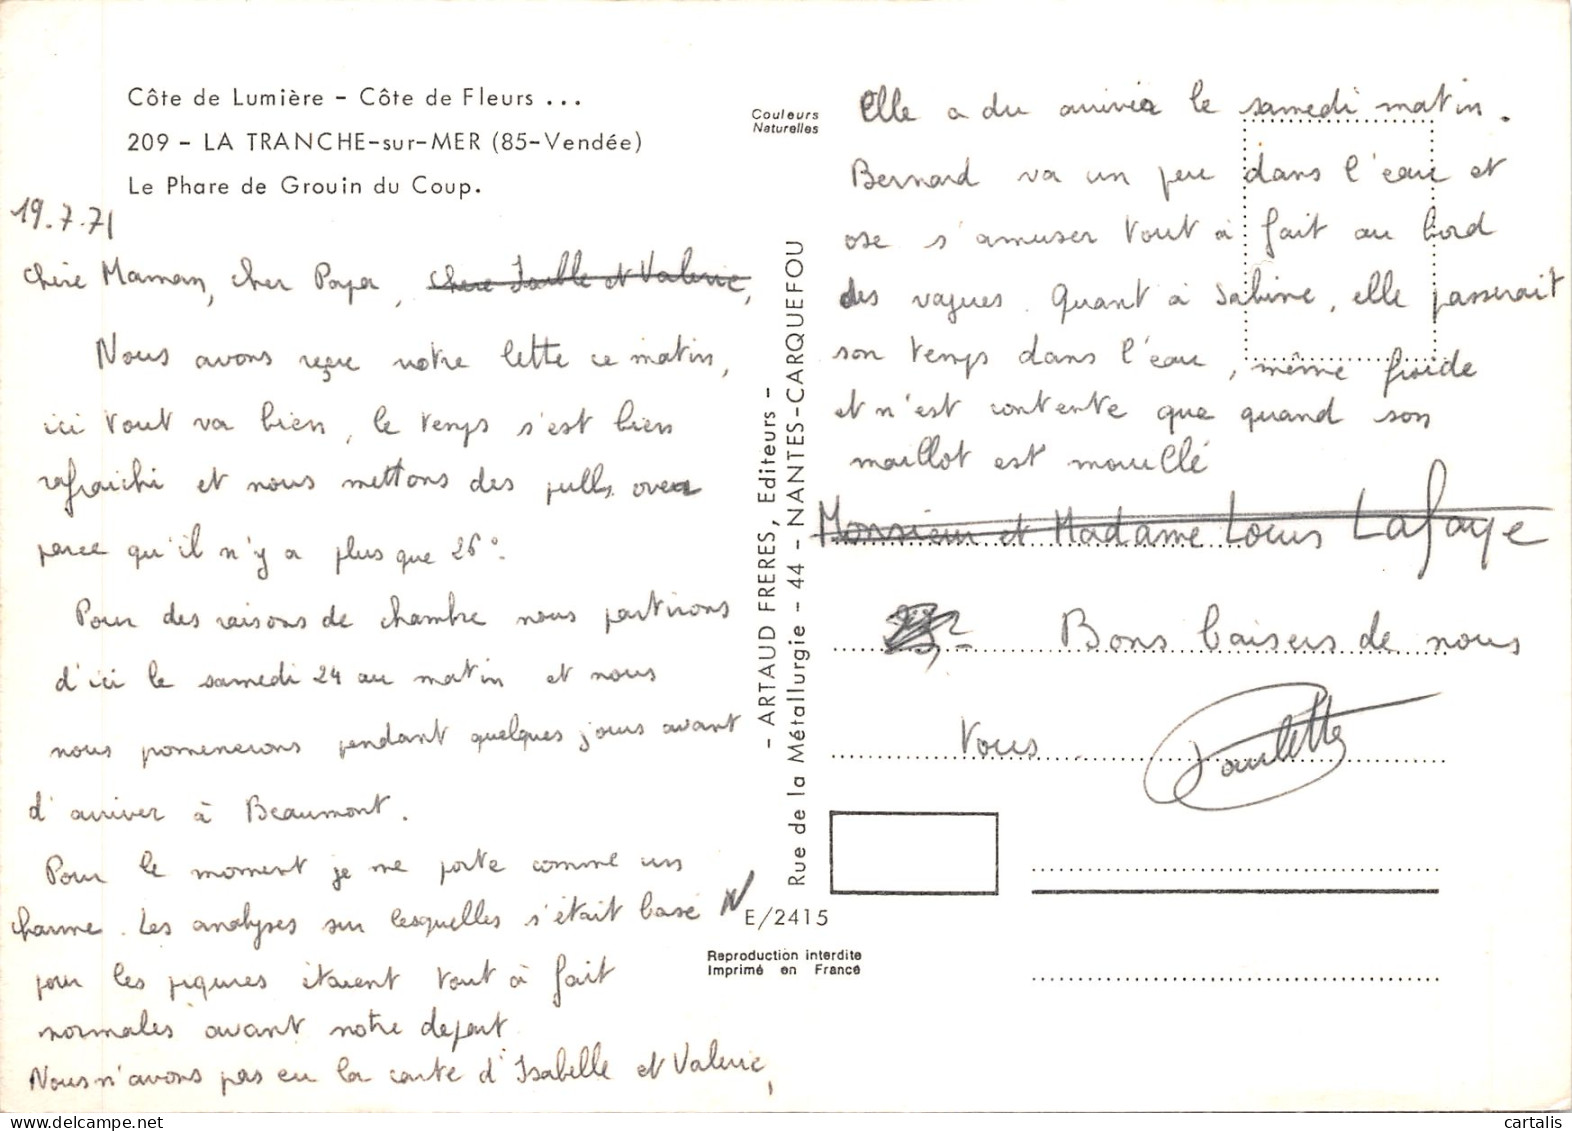 Côte de Lumière - Côte de Fleurs ...
209 - LA TRANCHE-sur-MER (85-Vendée)
Le Phare de Grouin du Coup.
19.7.71
Chère Maman, cher Papa, Chère Isabelle et Valerie,
Nous avons reçue votre lette ce matin,
ici tout va bien, le temps s'est bien
rafraichi et nous mettons des pulls over
parce qu'il n'y a plus que 26°.
Pour des raisons de chambre nous partirons
d'ici le samedi 24 au matin et nous
nous promenerons pendant quelques jours avant
d'arriver à Beaumont.
Pour le moment je me porte comme un
charme. Les analyses sur lesquelles s'était basé N
pour les piqures étaient tout à fait
normales avant notre depart
Nous n'avons pas eu la carte d'Isabelle et Valerie,
Couleurs
Naturelles
- ARTAUD FRERES, Editeurs -
Rue de la Métallurgie - 44 - NANTES-CARQUEFOU
E/2415
Reproduction interdite
Imprimé en France
Elle a du arriver le samedi matin.
Bernard va un peu dans l'eau et
ose s'amuser tout à fait au bord
des vagues. Quant à Sabine, elle passerait
son temps dans l'eau, même froide
et n'est contente que quand son
maillot est mouillé
Monsieur et Madame Louis Lafaye
Bons baisers de nous
tous
Paulette
cartalis